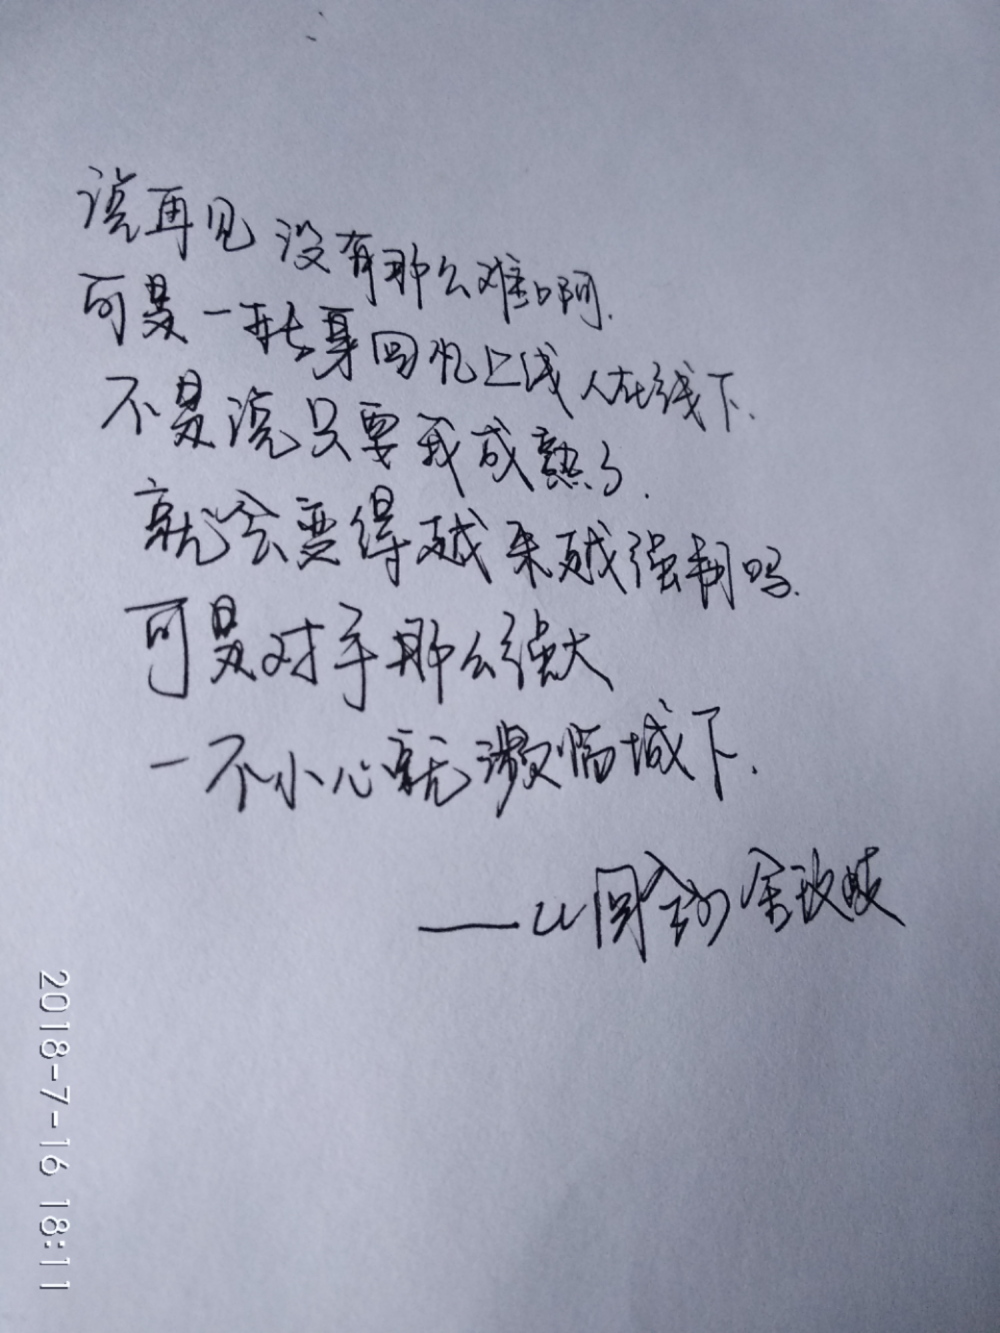 说再见 没有那么难啊.
可是一转身回忆上线 人在线下.
不是说只要我成熟了.
就会变得越来越强制吗.
可是对手那么强大
一不小心就濒临城下.
——以 金玟岐
2018-7-16 18:11